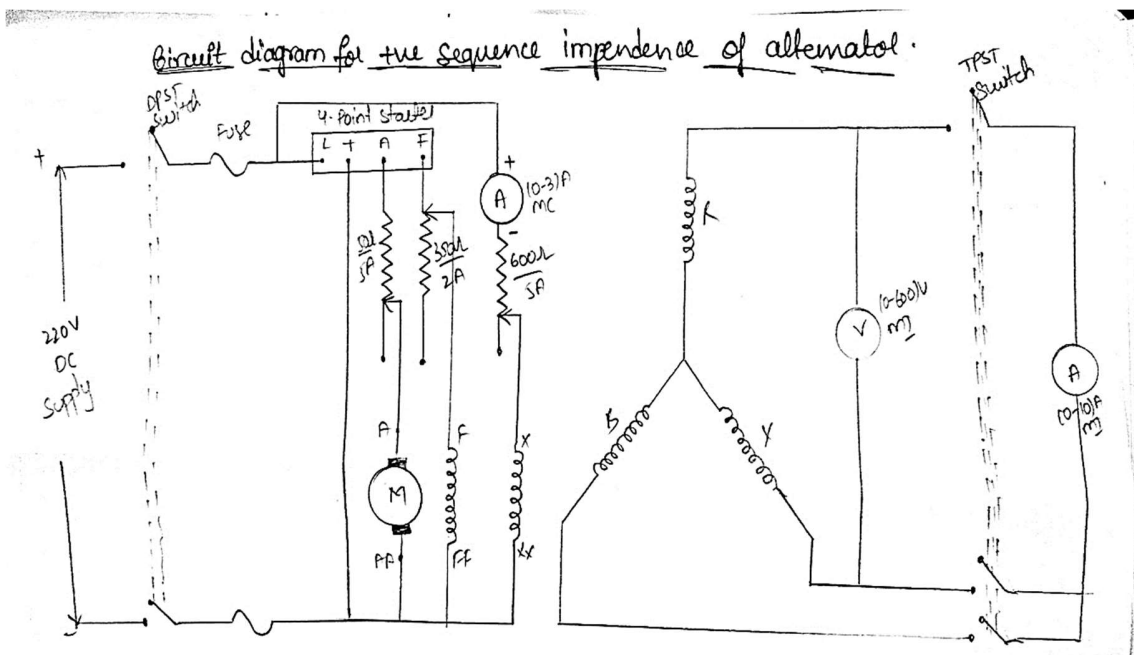 Circuit diagram for +ve sequence impendence of alternator.
DPST
Switch
Fuse
4-Point Starter
L + A F
+
-
220V
DC
Supply
5A
350Ω
2A
+
A
(0-3)A
MC
-
600Ω
5A
A
M
AA
F
FF
X
XX
R
B
Y
V
(0-600)V
MI
TPST
Switch
A
(0-10)A
MI